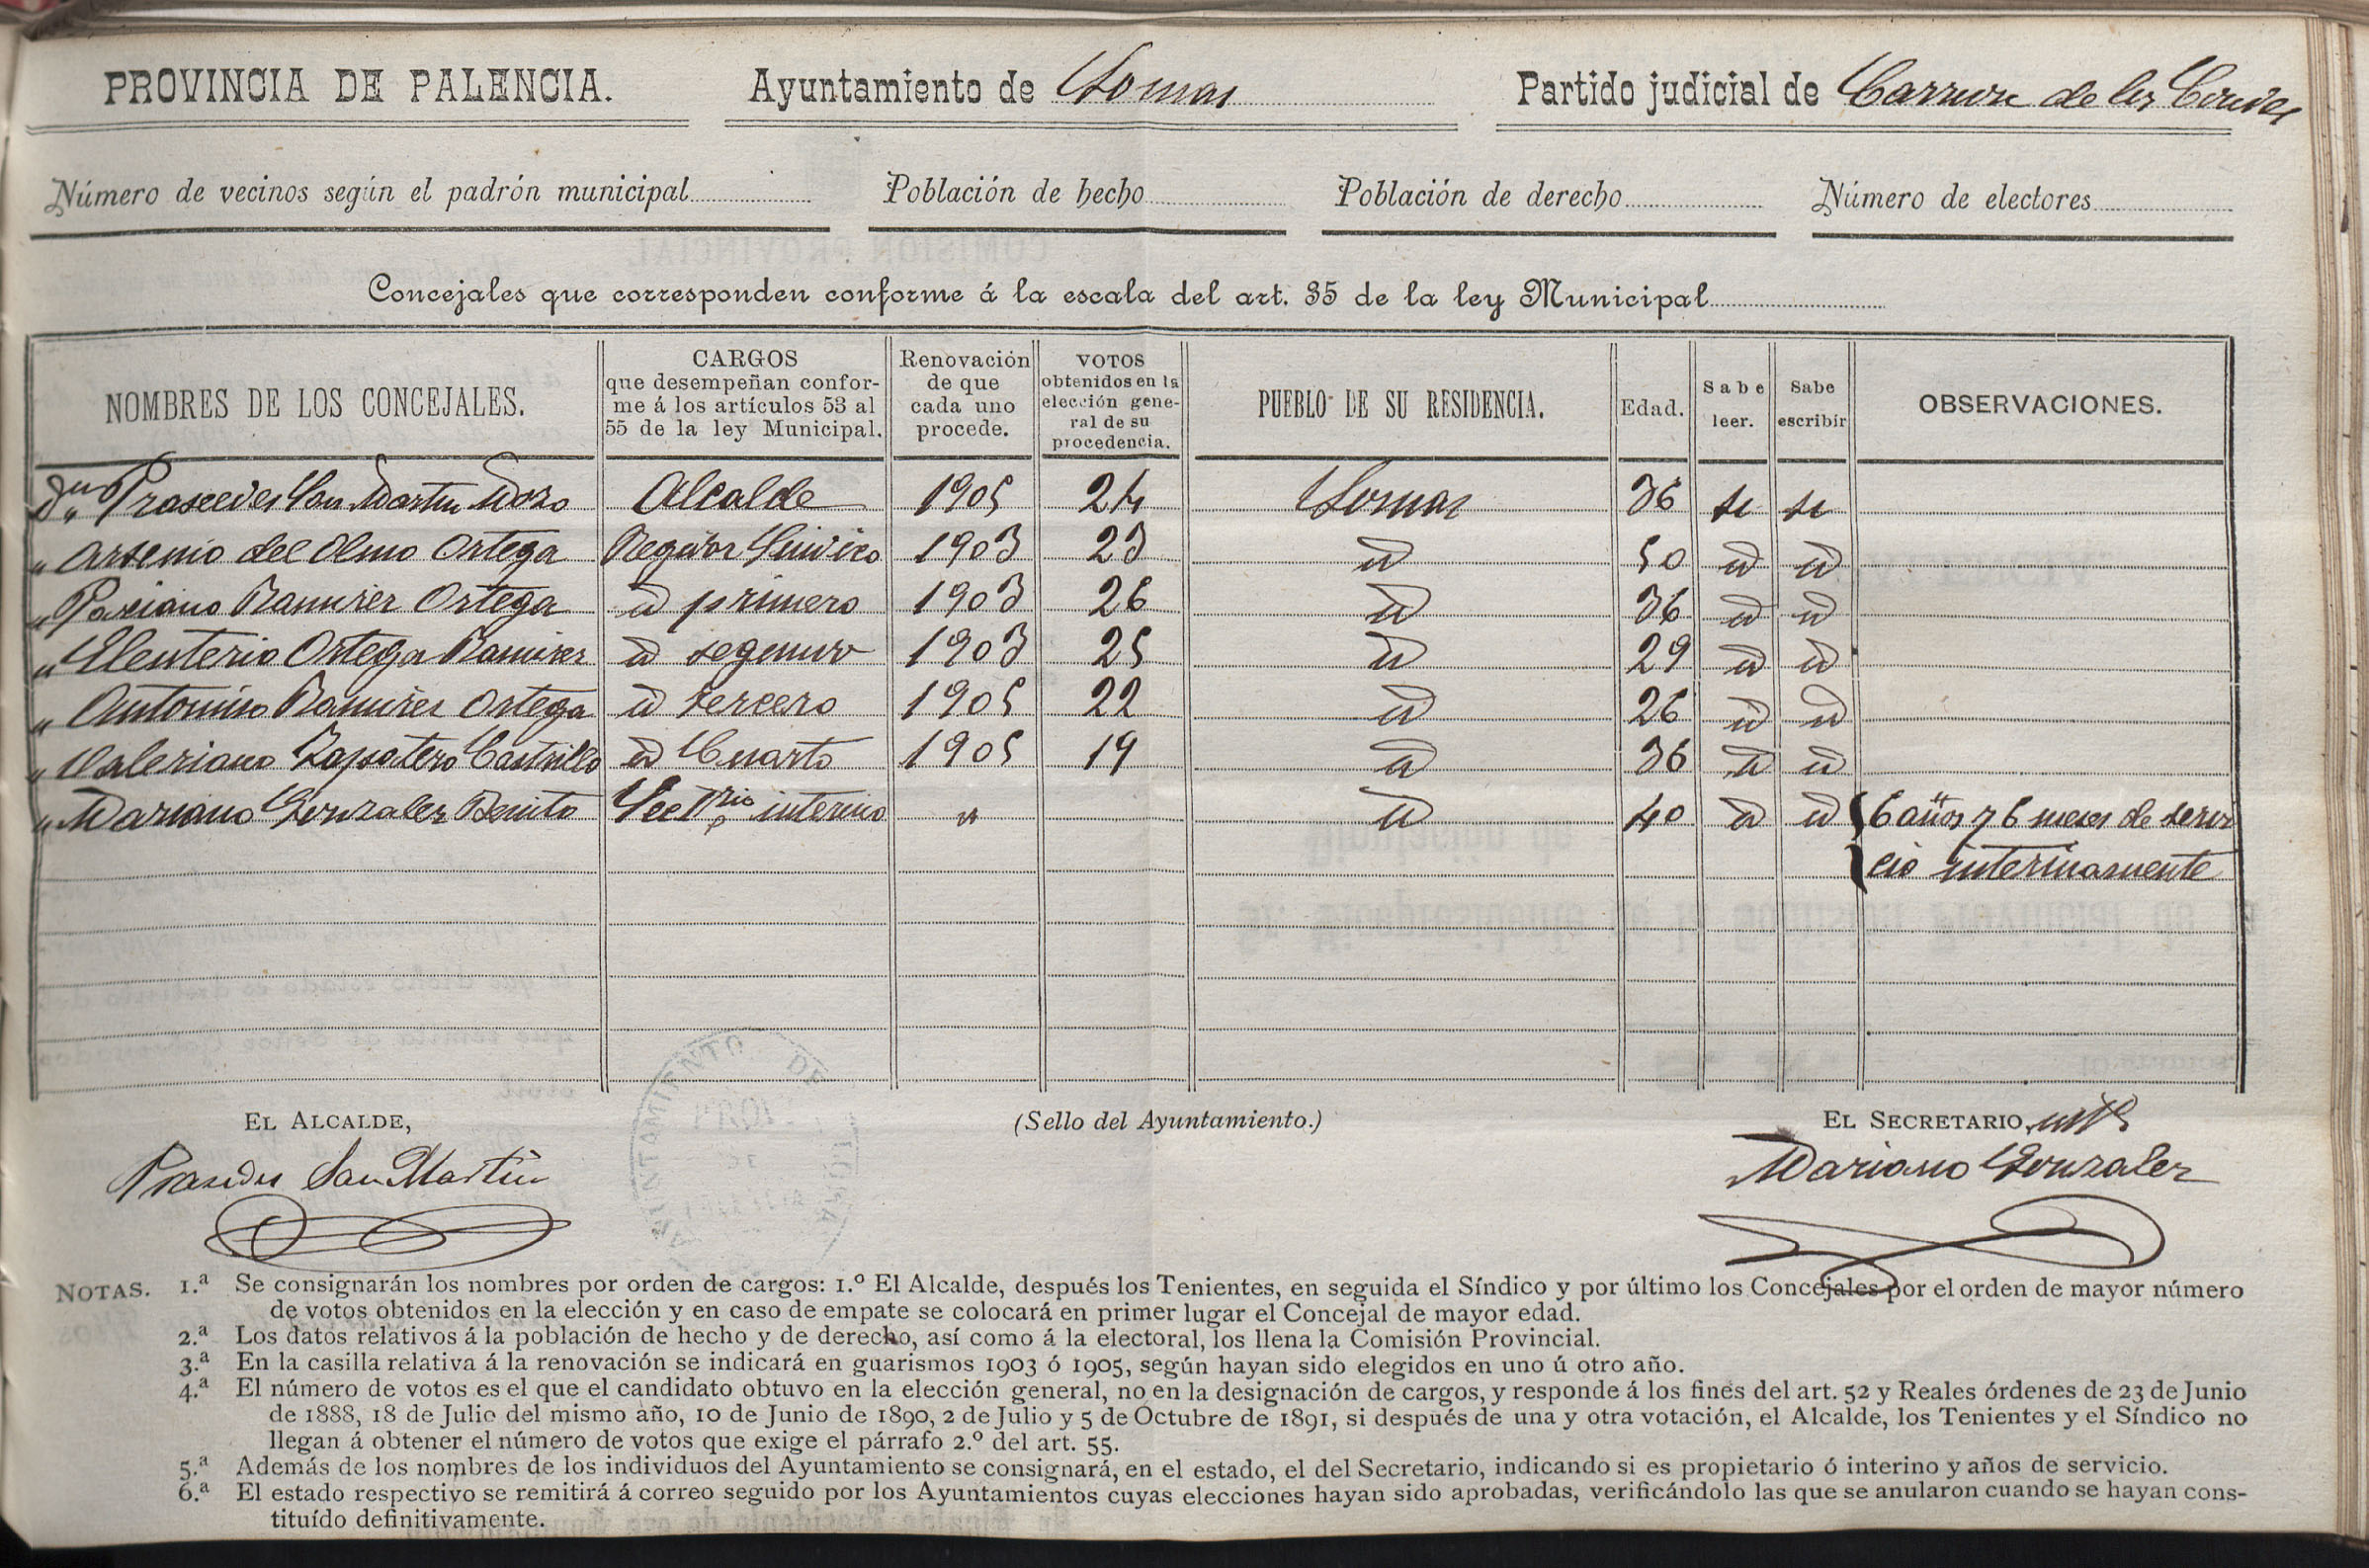 PROVINCIA DE PALENCIA. Ayuntamiento de Lomas Partido judicial de Carrion de los Condes
Número de vecinos según el padrón municipal Población de hecho Población de derecho Número de electores
Concejales que corresponden conforme á la escala del art. 35 de la ley Municipal
NOMBRES DE LOS CONCEJALES. CARGOS que desempeñan conforme á los artículos 53 al 55 de la ley Municipal. Renovación de que cada uno procede. VOTOS obtenidos en la elección general de su procedencia. PUEBLO DE SU RESIDENCIA. Edad. Sabe leer. Sabe escribir OBSERVACIONES.
Dn Praxedes San Martin Mozo Alcalde 1905 24 Lomas 36 si si
" Arsenio del Olmo Ortega Regidor Sindico 1903 23 id 50 id id
" Paciano Ramirez Ortega id primero 1903 26 id 36 id id
" Eleuterio Ortega Ramirez id segundo 1903 25 id 29 id id
" Antonino Ramirez Ortega id tercero 1905 22 id 26 id id
" Valeriano Zapatero Castrillo id Cuarto 1905 19 id 36 id id
" Mariano Gonzalez Benito Secrio interino " id 40 id id 6 años y 6 meses de servi
cio interinamente
EL ALCALDE, (Sello del Ayuntamiento.) EL SECRETARIO,
AYUNTAMIENTO DE
Praxedes San Martin Mariano Gonzalez
NOTAS. 1.ª Se consignarán los nombres por orden de cargos: 1.º El Alcalde, después los Tenientes, en seguida el Síndico y por último los Concejales por el orden de mayor número
de votos obtenidos en la elección y en caso de empate se colocará en primer lugar el Concejal de mayor edad.
2.ª Los datos relativos á la población de hecho y de derecho, así como á la electoral, los llena la Comisión Provincial.
3.ª En la casilla relativa á la renovación se indicará en guarismos 1903 ó 1905, según hayan sido elegidos en uno ú otro año.
4.ª El número de votos es el que el candidato obtuvo en la elección general, no en la designación de cargos, y responde á los fines del art. 52 y Reales órdenes de 23 de Junio
de 1888, 18 de Julio del mismo año, 10 de Junio de 1890, 2 de Julio y 5 de Octubre de 1891, si después de una y otra votación, el Alcalde, los Tenientes y el Síndico no
llegan á obtener el número de votos que exige el párrafo 2.º del art. 55.
5.ª Además de los nombres de los individuos del Ayuntamiento se consignará, en el estado, el del Secretario, indicando si es propietario ó interino y años de servicio.
6.ª El estado respectivo se remitirá á correo seguido por los Ayuntamientos cuyas elecciones hayan sido aprobadas, verificándolo las que se anularon cuando se hayan cons-
tituído definitivamente.